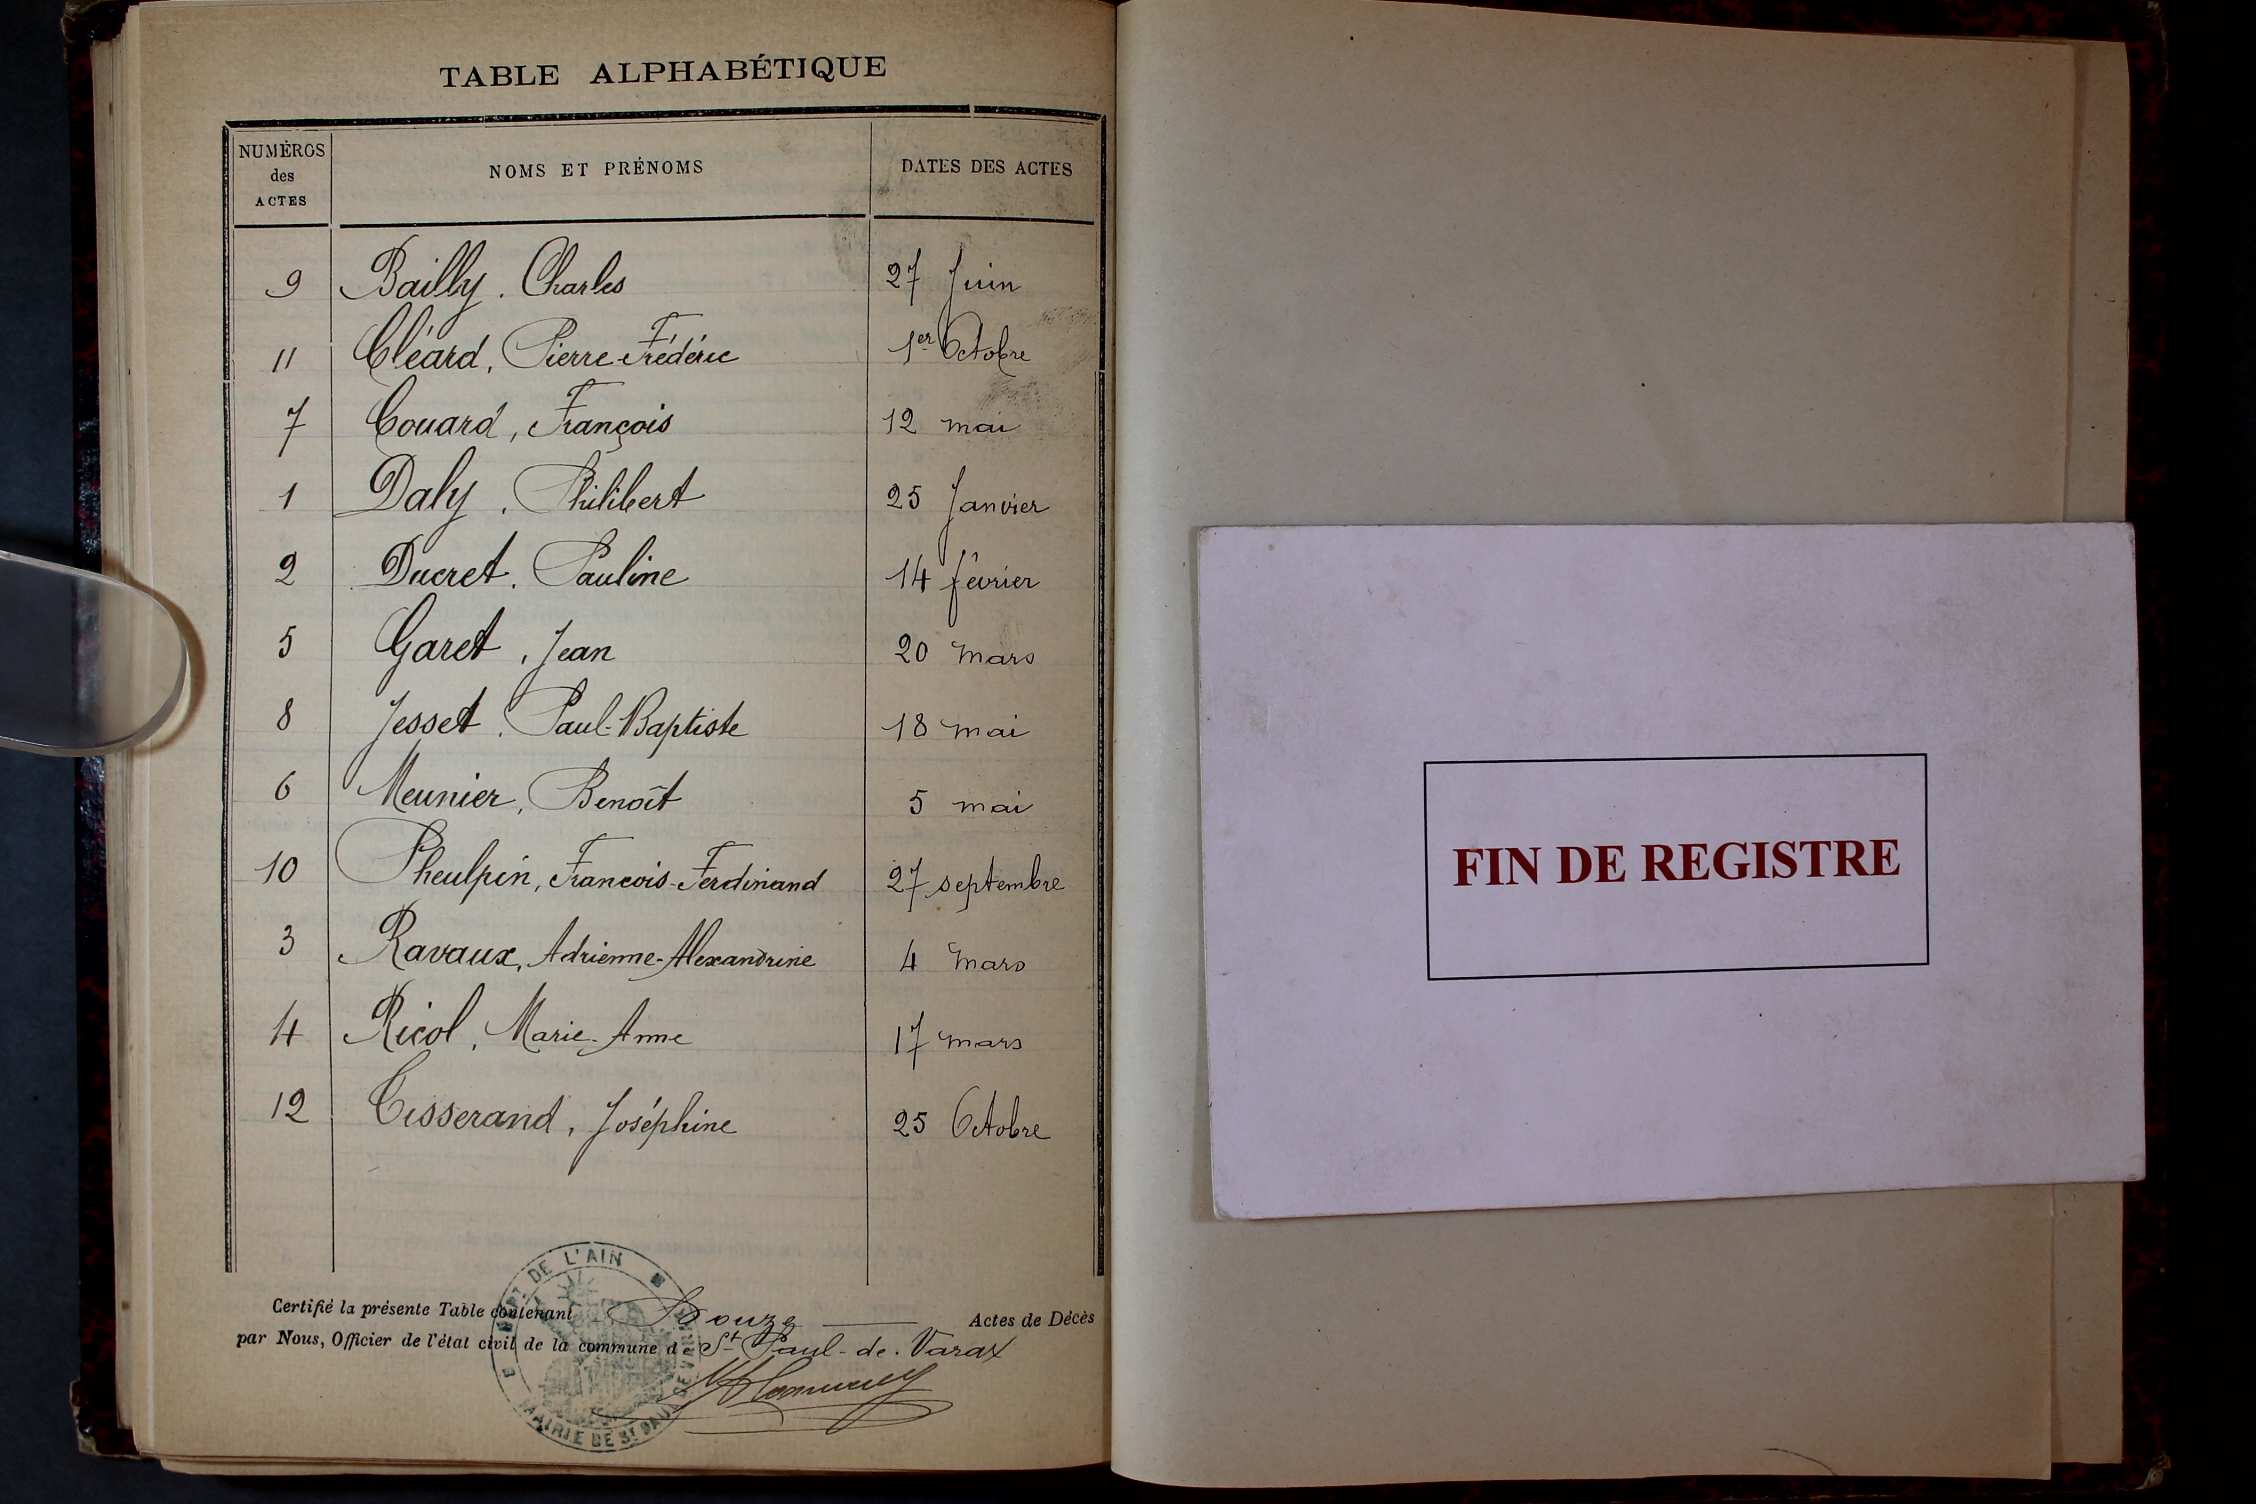 TABLE ALPHABÉTIQUE
NUMÉROS des ACTES
NOMS ET PRÉNOMS
DATES DES ACTES
9 Bailly, Charles 27 Juin
11 Cléard, Pierre-Frédéric 1er Octobre
7 Couard, François 12 mai
1 Daly, Philibert 25 Janvier
2 Ducret, Pauline 14 février
5 Garet, Jean 20 mars
8 Jesset, Paul-Baptiste 18 mai
6 Meunier, Benoît 5 mai
10 Pheulpin, François-Ferdinand 27 septembre
3 Ravaux, Adrienne-Alexandrine 4 mars
4 Ricol, Marie-Anne 17 mars
12 Tisserand, Joséphine 25 Octobre
Certifié la présente Table contenant Douze Actes de Décès
par Nous, Officier de l'état civil de la commune de St Paul-de-Varax
DEPT DE L'AIN
MAIRIE DE ST PAUL DE VARAX
FIN DE REGISTRE